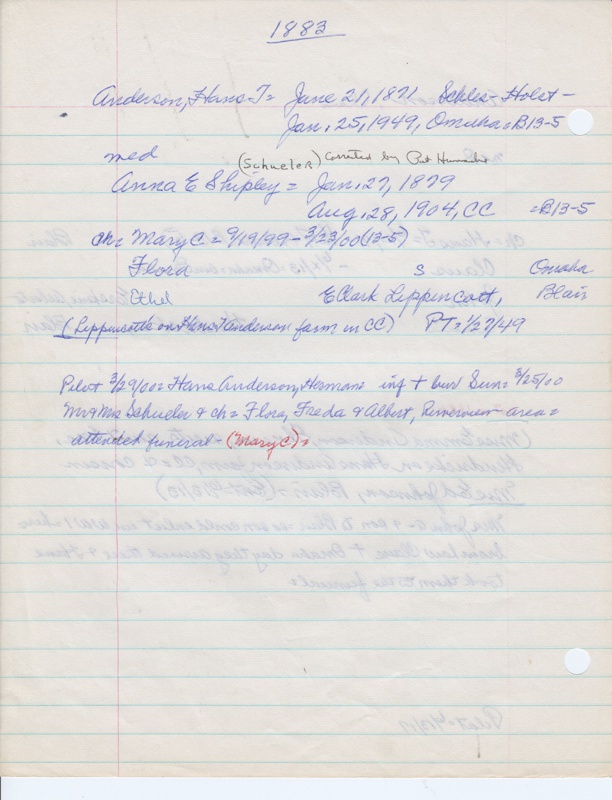 1883
Anderson, Hans T= June 21, 1871 Schles-Holst-
Jan. 25, 1949, Omaha=B13-5
med (Schueler) Corrected by Pat
Anna E Shipley = Jan. 27, 1879
Aug. 28, 1904, CC =B13-5
ch= Mary C = 9/19/99 - 3/23/00 (13-5)
Flora S Omaha
Ethel E Clark Lippencott, Blair
(Lippencotts on Hans T Anderson farm in CC) PT=1/27/49
Pilot 3/29/00= Hans Anderson, Herman= inf + bur Sun= 3/25/00
Mr & Mrs Schueler & ch= Flora, Freda & Albert, Riverview area=
attended funeral- (Mary C)=